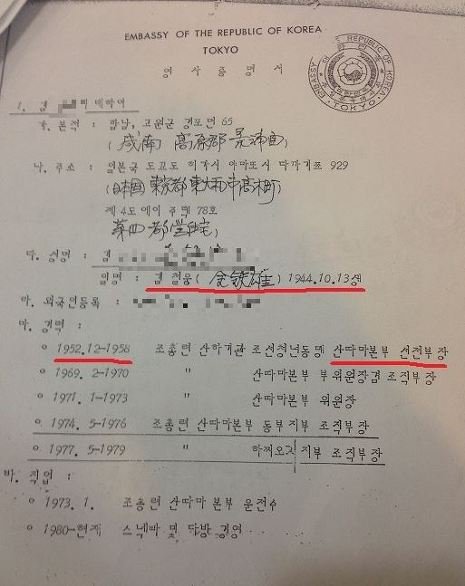 EMBASSY OF THE REPUBLIC OF KOREA
TOKYO
영 사 증 명 서
EMBASSY OF THE REPUBLIC OF KOREA TOKYO
1. 김
가. 본적 : 함남, 고원군 경포면 65
(咸南 高原郡 景浦面)
나. 주소 : 일본국 도꾜도 히가시 야마또시 다까기쪼 929
(日本國 東京都 東大和市 高木町)
제 4도에이 주택 78호
第四都営住宅)
다. 성명 : 김
일명 : 김 철웅 (金鉄雄) 1944.10.13생
라. 외국인등록 :
마. 경력 :
o 1952.12-1958 조총련 산하기관 조선청년동맹 산따마본부 선전부장
o 1969. 2-1970 " 산따마본부 부위원장겸 조직부장
o 1971. 1-1973 " 산따마본부 위원장
o 1974. 5-1976 조총련 산따마본부 동부지부 조직부장
o 1977. 5-1979 " 하찌오지 지부 조직부장
바. 직업 :
o 1973. 1. 조총련 산따마 본부 운전수
o 1980-현재 스넥빠 및 다방 경영